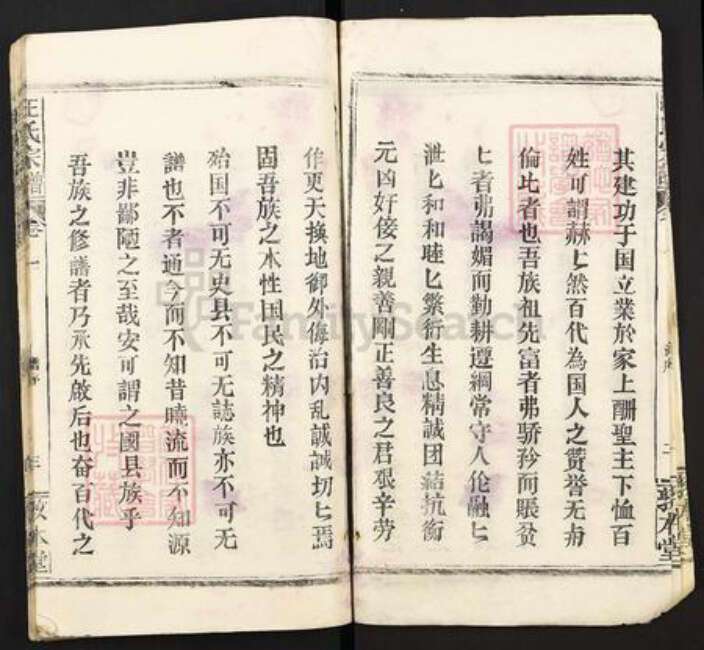 其建功于国立業於家上酬聖主下恤百
姓可謂赫匕然百代為国人之贊誉无有
倫比者也吾族祖先富者弗骄矜而賬貧
匕者弗謁媚而勤耕遵綱常守人伦融匕
泄匕和和睦匕繁衍生息精誠团结抗衡
元凶奸佞乙親善剛正善良之君艰辛劳
作更天换地御外侮治内乱誠誠切匕焉
固吾族之本性国民之精神也
殆国不可无史县不可无誌族亦不可无
譜也不者通今而不知昔曉流而不知源
豈非鄙陋之至哉安可謂之國县族乎
吾族之修譜者乃承先啟后也奋百代之
汪氏宗譜
卷一
敦本堂
FamilySearch